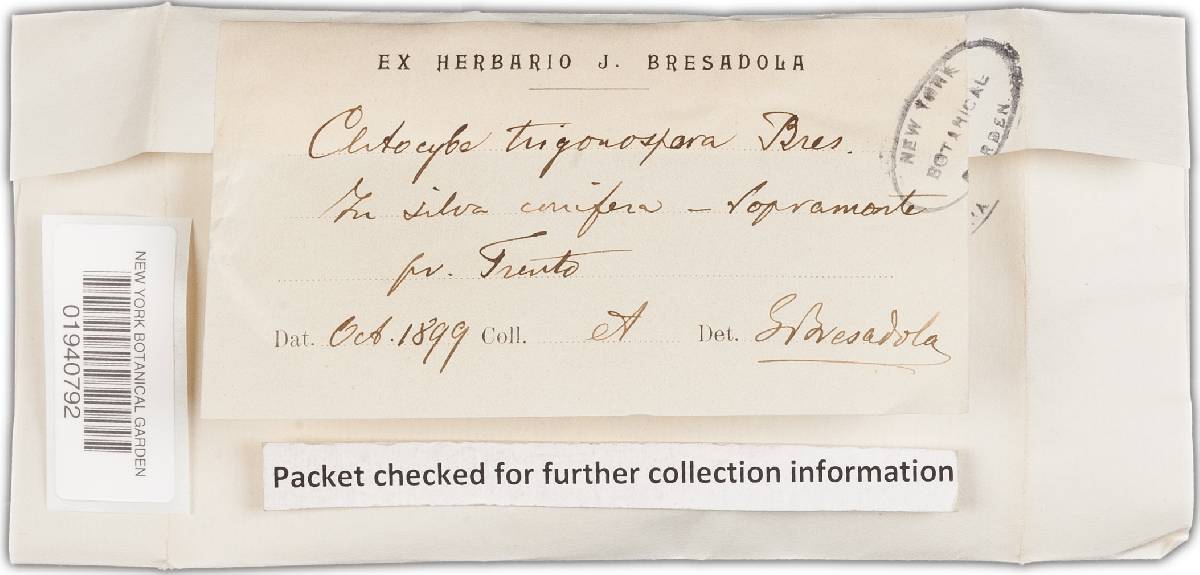 EX HERBARIO J. BRESADOLA
Clitocybe trigonospora Bres.
In silva conifera – Sopramonte
pr. Trento
Dat. Oct. 1899 Coll. et Det. GBresadola
NEW YORK
BOTANICAL
GARDEN
NEW YORK BOTANICAL GARDEN
01940792
Packet checked for further collection information